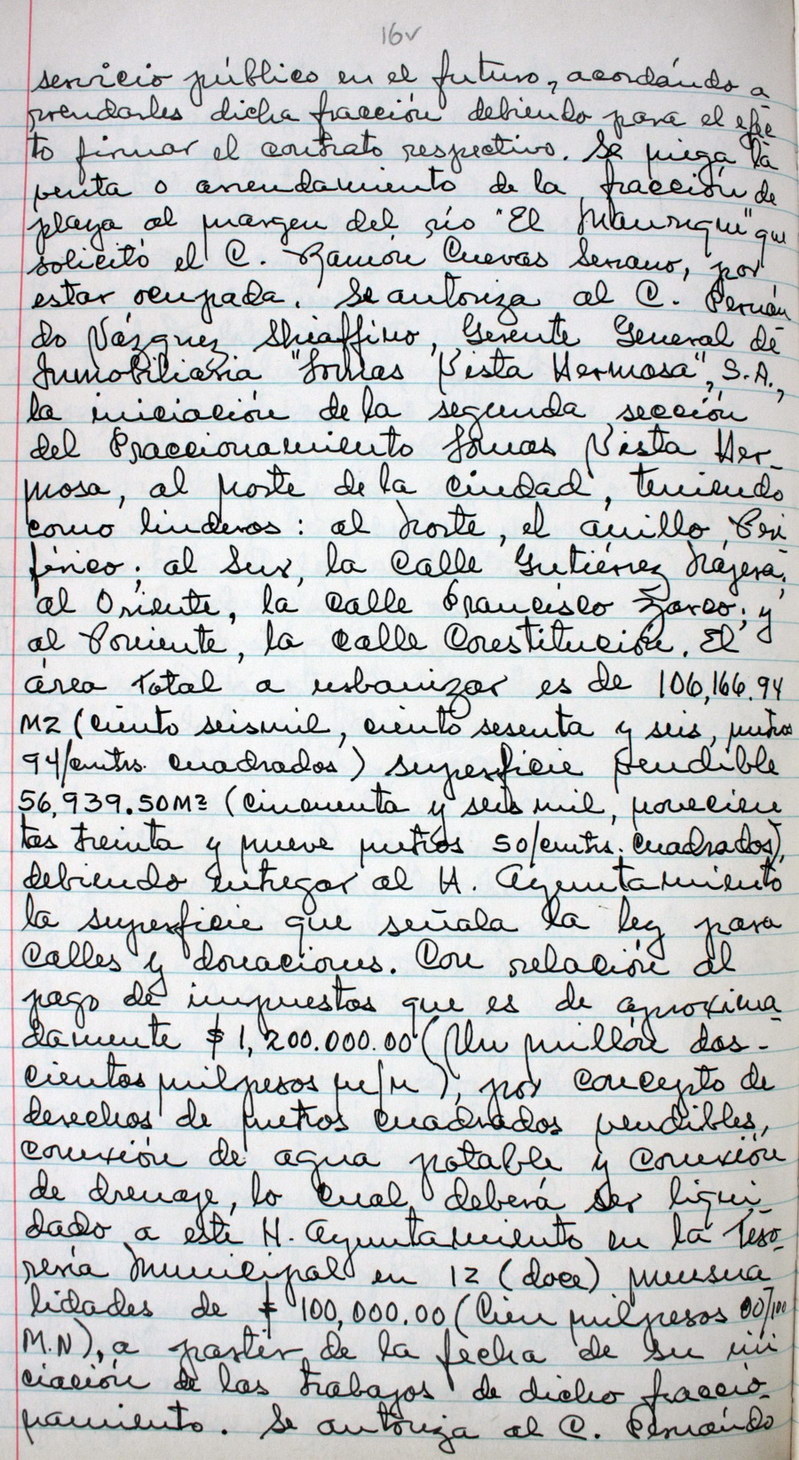 16v
servicio público en el futuro, acordándo a-
rrendarles dicha fracción debiendo para el efec
to firmar el contrato respectivo. Se niega la
venta o arrendamiento de la fracción de
playa al margen del río "El Manrique" que
solicitó el C. Ramón Cuevas Serrano, por
estar ocupada. Se autoriza al C. Fernán
do Vázquez Shiaffino, Gerente General de
Inmobiliaria "Lomas Vista Hermosa", S.A.,
la iniciación de la segunda sección
del Fraccionamiento Lomas Vista Her-
mosa, al norte de la ciudad, teniendo
como linderos: al Norte, el anillo Peri
férico; al Sur, la calle Gutiérrez Nájera;
al Oriente, la calle Francisco Zarco; y
al Poniente, la calle Constitución. El
área total a urbanizar es de 106,166.94
M2 (ciento seismil, ciento sesenta y seis, metros
94/cmtrs. cuadrados) superficie vendible
56,939.50M2 (cincuenta y seis mil, novecien
tos treinta y nueve metros 50/cmtrs. cuadrados),
debiendo entregar al H. Ayuntamiento
la superficie que señala la ley para
calles y donaciones. Con relación al
pago de impuestos que es de aproxima
damente $ 1,200.000.00 (Un millón dos-
cientos milpesos m/n), por concepto de
derechos de metros cuadrados vendibles,
conexión de agua potable y conexión
de drenaje, lo cual deberá ser liqui
dado a este H. Ayuntamiento en la Teso-
rería Municipal en 12 (doce) mensua
lidades de $ 100,000.00 (Cien milpesos 00/100
M.N), a partir de la fecha de su ini
ciación de los trabajos de dicho fraccio-
namiento. Se autoriza al C. Fernándo